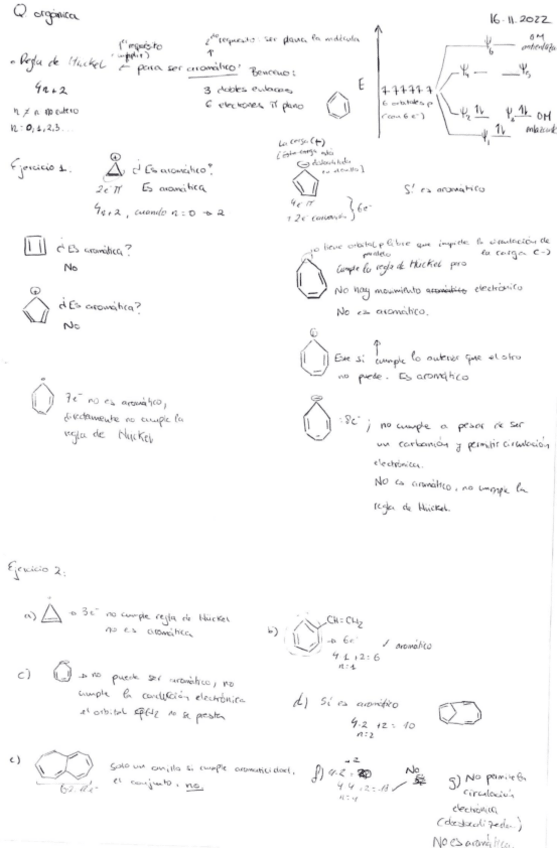 Q orgánica
16-11-2022
Regla de Huckel
1er requisito
para ser aromático
4n+2
n ≠ no entero
n = 0, 1, 2, 3...
2do requisito: ser plana la molécula
Benceno:
3 dobles enlaces
6 electrones π plano
E
6 orbitales p
(con 6 e-)
OM
OM
Ejercicio 1.
¿Es aromático?
2e- π
Es aromática
4n+2, cuando n=0 → 2
La carga (+)
4e- π
+ 2e-
} 6e-
Sí es aromático
¿Es aromática?
No
tiene orbital p libre que impide la circulación de
la carga (-)
Cumple la regla de Huckel pero
No hay movimiento electrónico
No es aromático.
¿Es aromática?
No
Este sí cumple lo anterior que el otro
no puede. Es aromático
7e- no es aromático,
directamente no cumple la
regla de Huckel
8e-; no cumple a pesar de ser
un carbanión y permitir circulación
electrónica.
No es aromático, no cumple la
regla de Huckel
Ejercicio 2:
a)
→ 3e- no cumple regla de Huckel
no es aromática
b)
CH=CH2
→ 6e-
✓ aromático
4·1+2=6
n=1
c)
→ no puede ser aromático, no
cumple la condición electrónica
el orbital no se presta
d) Sí es aromático
4·2+2=10
n=2
Solo un anillo sí cumple aromaticidad,
el conjunto, no.
f)
No
n=4
g) No permite la
circulación
electrónica
No es aromática.